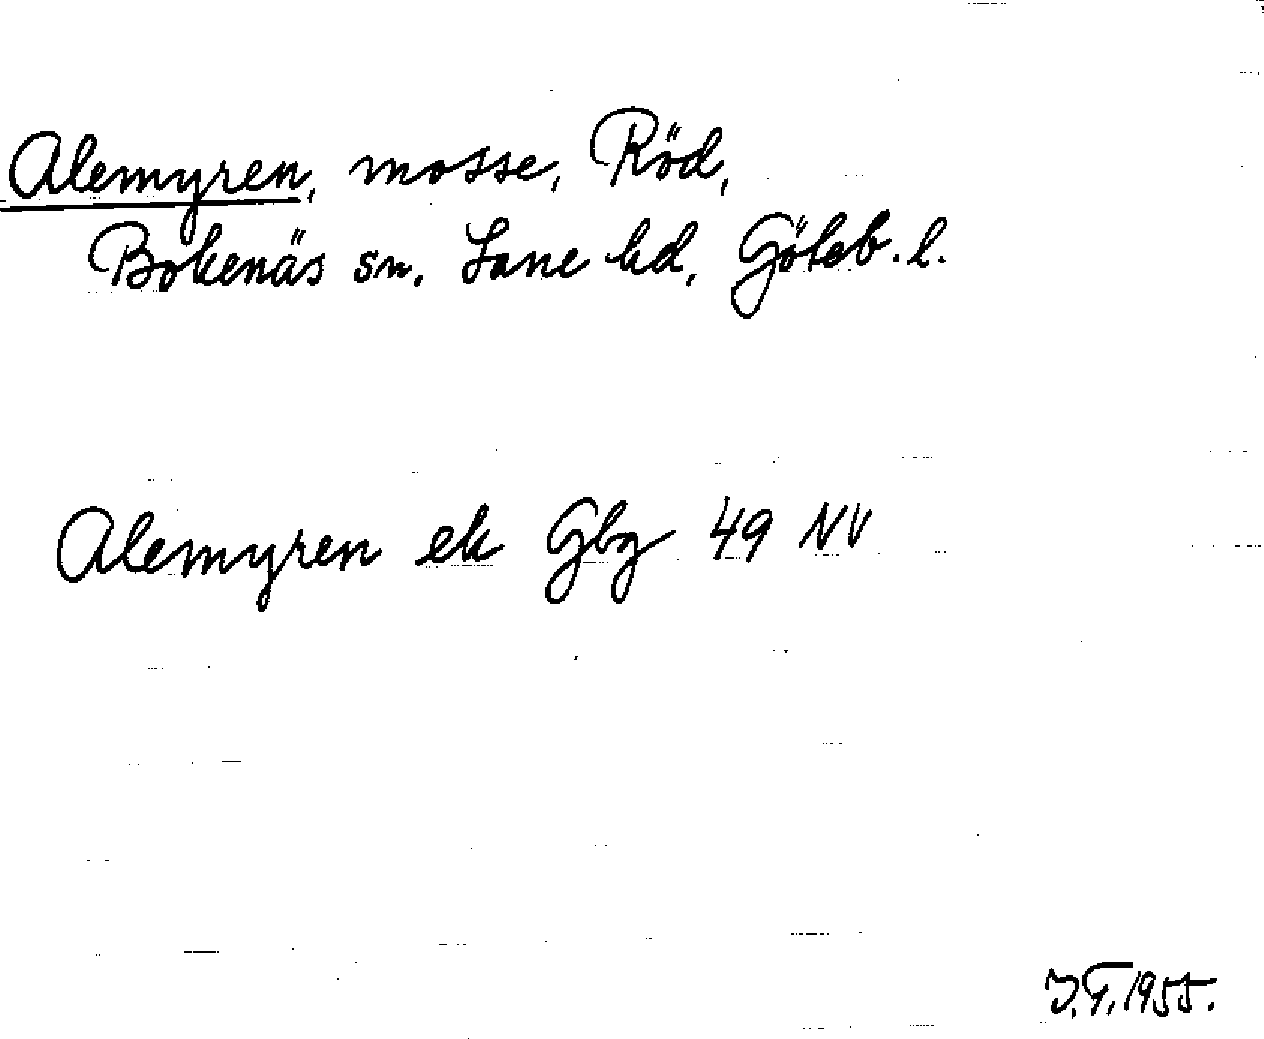 Alemyren, mosse, Röd,
Bokenäs sn. Lane hd, Göteb. l.
Alemyren ek Gbg 49 NV
J.T. 1955.